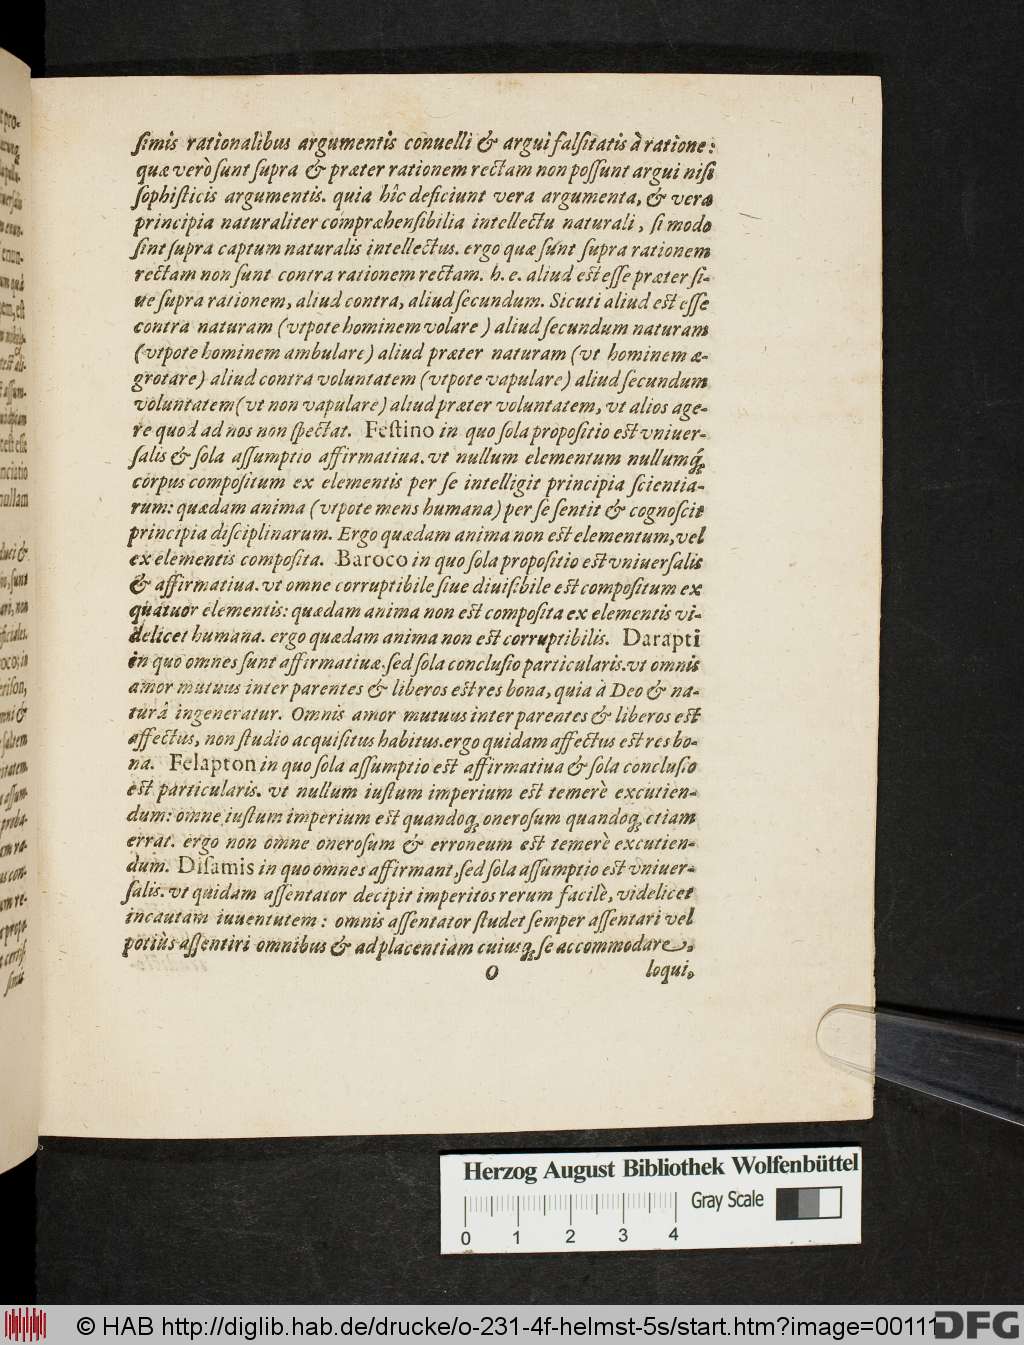 simis rationalibus argumentis conuelli & argui falsitatis à ratione:
quæ verò sunt supra & præter rationem rectam non possunt argui nisi
sophisticis argumentis. quia hîc deficiunt vera argumenta, & vera
principia naturaliter compræhensibilia intellectu naturali, si modo
sint supra captum naturalis intellectus. ergo quæ sunt supra rationem
rectam non sunt contra rationem rectam. h. e. aliud est esse præter si-
ue supra rationem, aliud contra, aliud secundum. Sicuti aliud est esse
contra naturam (vtpote hominem volare) aliud secundum naturam
(vtpote hominem ambulare) aliud præter naturam (vt hominem æ-
grotare) aliud contra voluntatem (vtpote vapulare) aliud secundum
voluntatem (vt non vapulare) aliud præter voluntatem, vt alios age-
re quod ad nos non spectat. Festino in quo sola propositio est vniuer-
salis & sola assumptio affirmatiua. vt nullum elementum nullumq́;
corpus compositum ex elementis per se intelligit principia scientia-
rum: quædam anima (vtpote mens humana) per se sentit & cognoscit
principia disciplinarum. Ergo quædam anima non est elementum, vel
ex elementis composita. Baroco in quo sola propositio est vniuersalis
& affirmatiua. vt omne corruptibile siue diuisibile est compositum ex
quatuor elementis: quædam anima non est composita ex elementis vi-
delicet humana. ergo quædam anima non est corruptibilis. Darapti
in quo omnes sunt affirmatiuæ. sed sola conclusio particularis. vt omnis
amor mutuus inter parentes & liberos est res bona, quia à Deo & na-
turâ ingeneratur. Omnis amor mutuus inter parentes & liberos est
affectus, non studio acquisitus habitus. ergo quidam affectus est res bo-
na. Felapton in quo sola assumptio est affirmatiua & sola conclusio
est particularis. vt nullum iustum imperium est temerè excutien-
dum: omne iustum imperium est quandoq; onerosum quandoq; etiam
errat. ergo non omne onerosum & erroneum est temerè excutien-
dum. Disamis in quo omnes affirmant, sed sola assumptio est vniuer-
salis. vt quidam assentator decipit imperitos rerum facilè, videlicet
incautam iuuentutem: omnis assentator studet semper assentari vel
potiùs assentiri omnibus & ad placentiam cuiusq; se accommodare.
O loqui.
Herzog August Bibliothek Wolfenbüttel
0 1 2 3 4 Gray Scale
© HAB http://diglib.hab.de/drucke/o-231-4f-helmst-5s/start.htm?image=00111
DFG